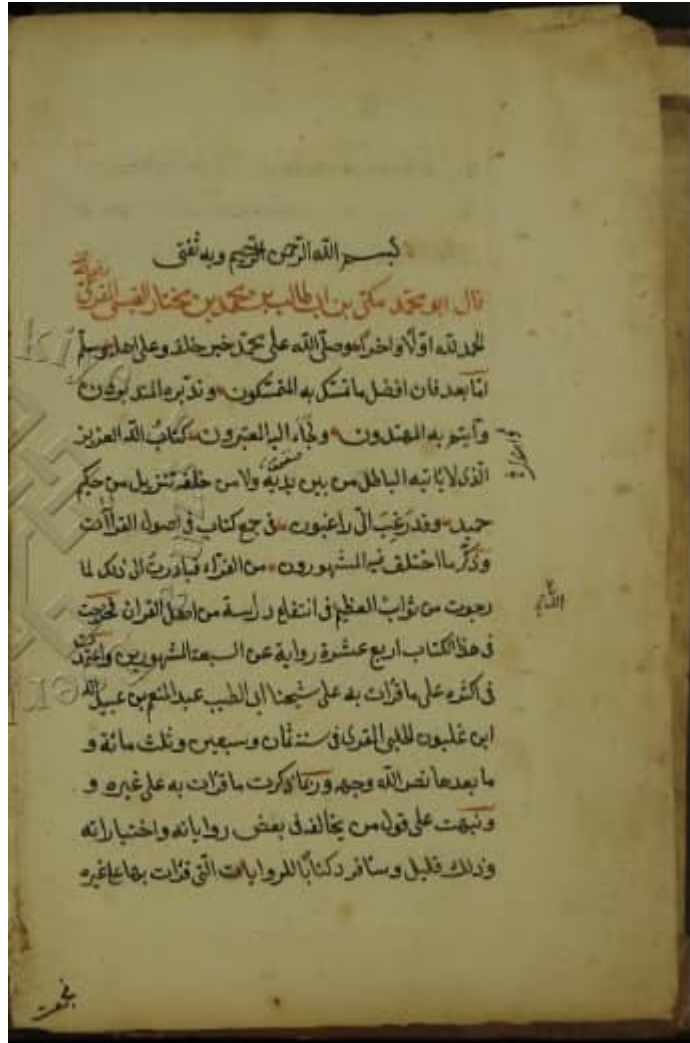 بسم الله الرحمن الرحيم وبه ثقتى
قال ابو محمد مكى بن ابى طالب بن محمد بن مختار القيسى المقرى
الحمد لله اولا واخرا وصلى الله على محمد خير خلقه وعلى اهله وسلم
امّا بعد فان افضل ما تمسك به المتمسكون وتدبره المتدبرون
وأيتم به المهتدون ولجاء اليه المعتبرون كتابُ الله العزيز
الّذى لا ياتيه الباطل من بين يديه ولا من خلفه تنزيل من حكيم
حميد وقد رَغِبَ الىّ راغبون فى جمع كتاب فى اصول القراآت
وذكر ما اختلف فيه المشهورون من القرّاء فبادرت الى ذلك لما
رجوت من ثواب العظيم فى انتفاع دراسة من اهل القران فخرجت
فى هذا الكتاب اربع عشرة رواية عن السبعة المشهورين واعتمدت
فى اكثره على ما قرات به على شيخنا ابى الطيب عبد المنعم بن عبيد الله
ابن غلبون الحلبى المقرى فى سنة ثمان وسبعين وثلث مائة و
ما بعدها نضر الله وجهه وربما ذكرت ما قرات به على غيره و
ونبهت على قول من يخالفه فى بعض رواياته واختياراته
وذلك قليل وسافرد كتابًا للروايات الّتى قرات بها على غيره